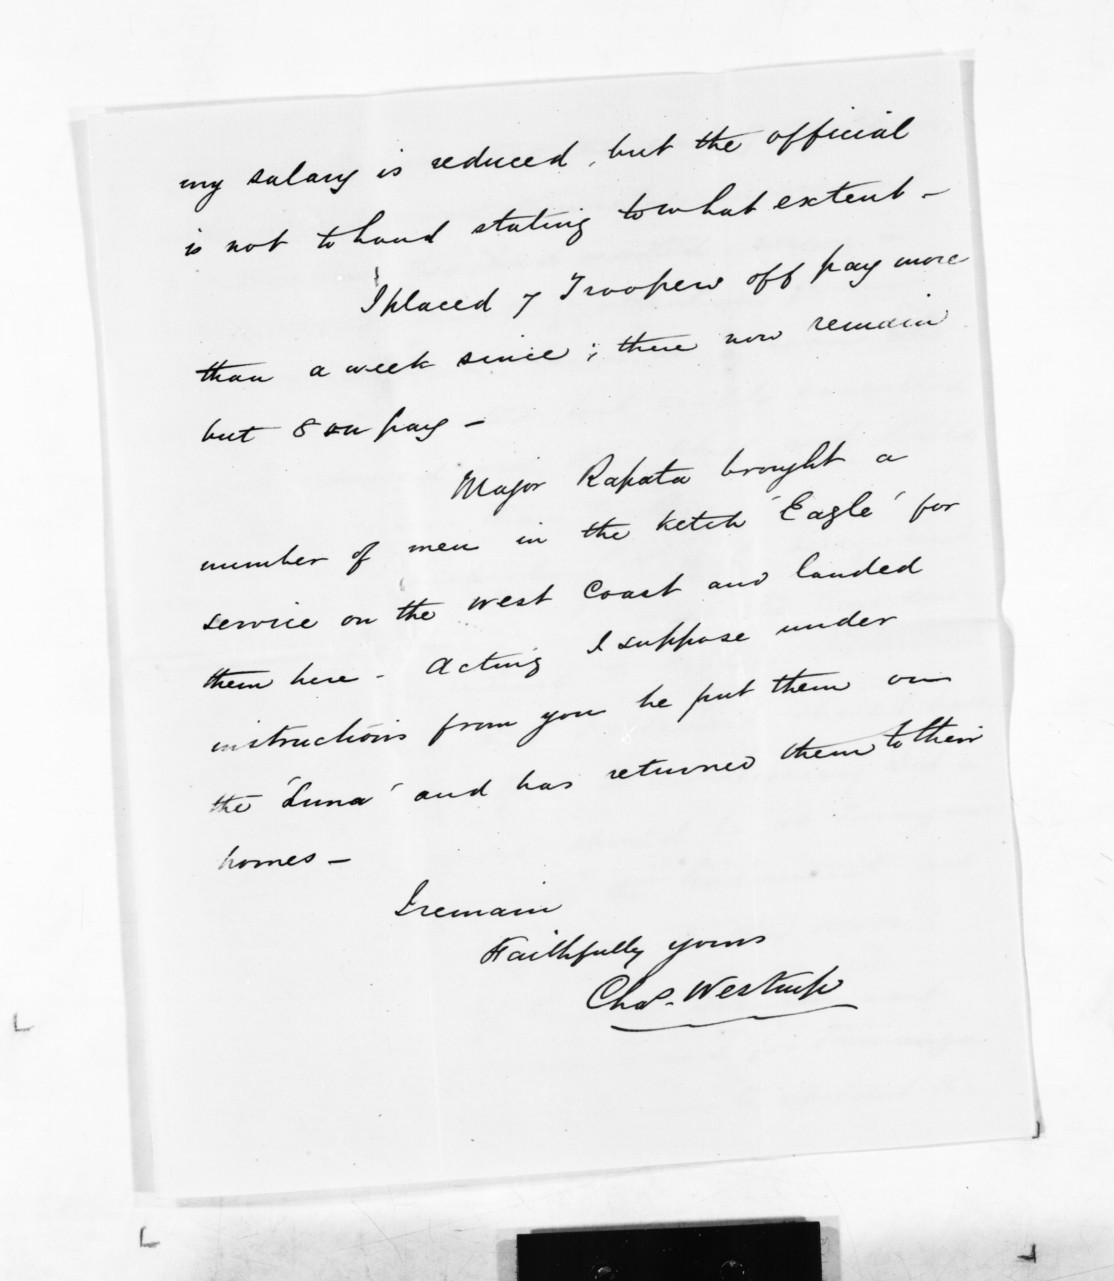 my salary is reduced, but the official
is not to hand stating to what extent -
I placed 7 Troopers off pay more
than a week since; there now remain
but 8 on pay -
Major Rapata brought a
number of men in the ketch 'Eagle' for
service on the West Coast and landed
them here - Acting I suppose under
instructions from you he put them on
the 'Luna' and has returned them to their
homes -
I remain
Faithfully yours
Chas. Westrup